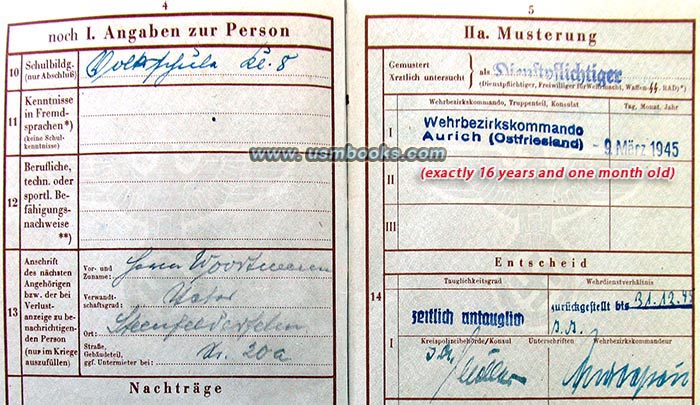 4
noch I. Angaben zur Person
10
Schulbildg.
(nur Abschluß)
Volksschule Kl. 8
11
Kenntnisse
in Fremd-
sprachen*)
(keine Schul-
kenntnisse)
12
Berufliche,
techn. oder
sportl. Be-
fähigungs-
nachweise
**)
13
Anschrift
des nächsten
Angehörigen
bzw. der bei
Verlust-
anzeige zu be-
nachrichtigen-
den Person
(nur im Kriege
auszufüllen)
Vor- und
Zuname:
Verwandt-
schaftsgrad:
Vater
Ort:
Steenfelderfehn
Straße,
Gebäudeteil,
ggf. Untermieter bei:
Nr. 20a
Nachträge
5
IIa. Musterung
Gemustert
Ärztlich untersucht
als Dienstpflichtiger
(Dienstpflichtiger, Freiwilliger für Wehrmacht, Waffen-SS, RAD)*)
Wehrbezirkskommando, Truppenteil, Konsulat
Tag, Monat, Jahr
I
Wehrbezirkskommando
Aurich (Ostfriesland)
- 9. März 1945
www.usmbooks.com
(exactly 16 years and one month old)
II
III
Entscheid
14
Tauglichkeitsgrad
Wehrdienstverhältnis
zeitlich untauglich
zurückgestellt bis 31.12.45
I
Kreispolizeibehörde/Konsul
Unterschriften
Wehrbezirkskommandeur
Müller